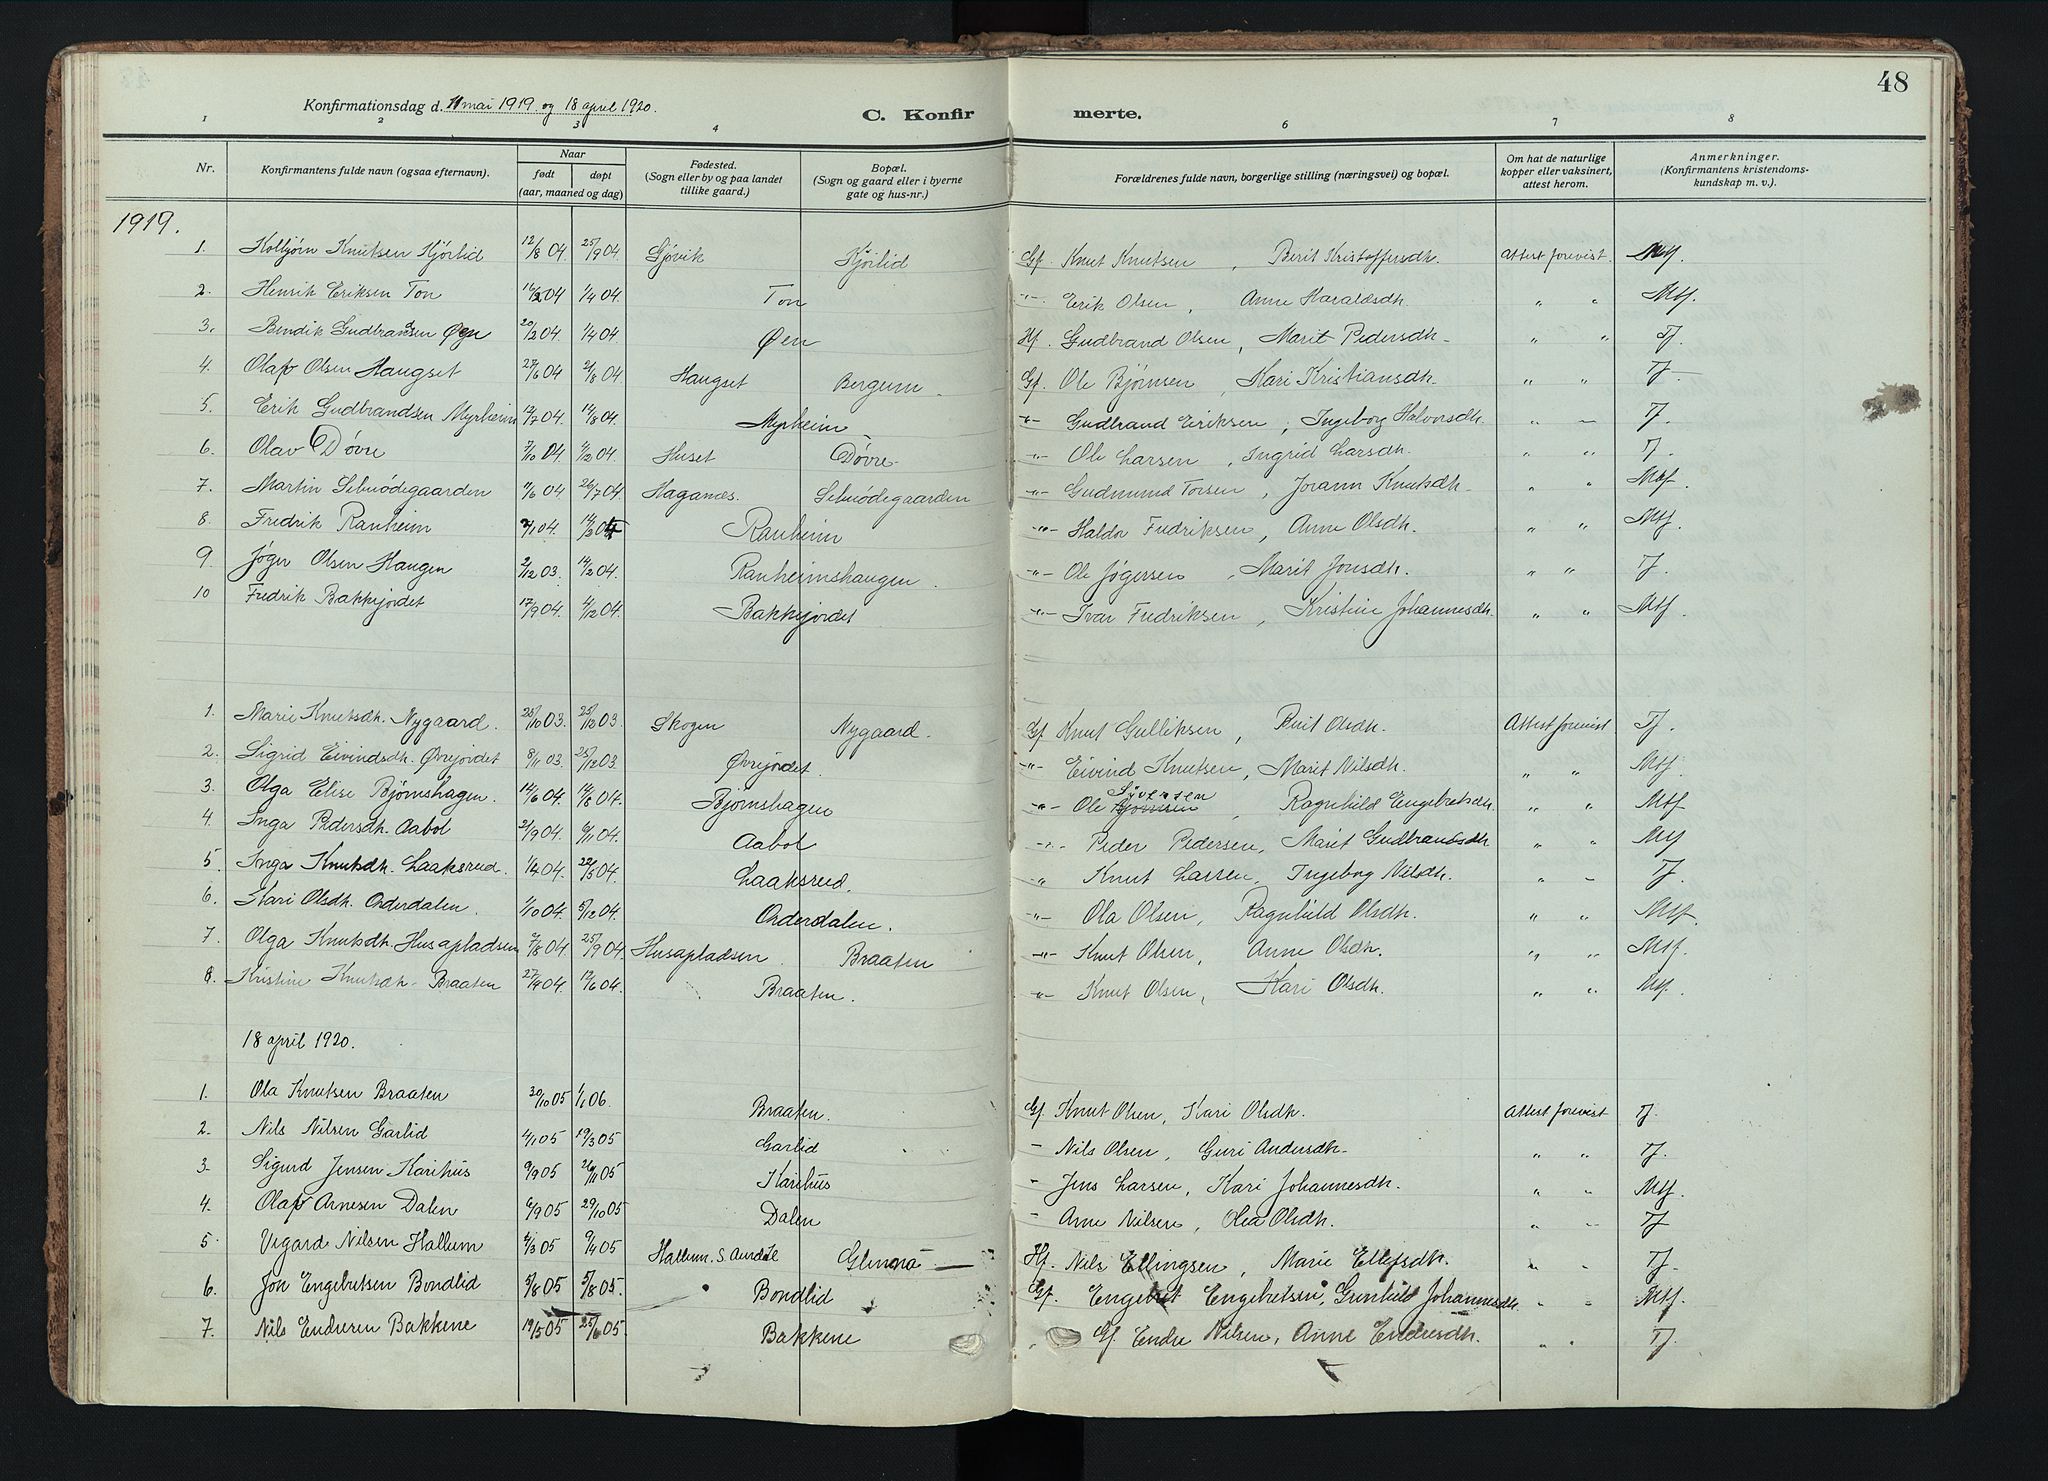 48
Konfirmationsdag d. 11 mai 1919 og 18 april 1920.
C. Konfirmerte.
1 2 3 4 5 6 7 8
Nr. Konfirmantens fulde navn (ogsaa efternavn). Naar født døpt (aar, maaned og dag) Fødested. (Sogn eller by og paa landet tillike gaard.) Bopæl. (Sogn og gaard eller i byerne gate og hus-nr.) Forældrenes fulde navn, borgerlige stilling (næringsvei) og bopæl. Om hat de naturlige kopper eller vaksinert, attest herom. Anmerkninger. (Konfirmantens kristendomskundskap m. v.).
1919.
1. Kolbjørn Knutsen Kjørlid 12/8 04 25/9 04. Gjøvik Kjørlid Gf. Knut Knutsen, Berit Kristoffersdh. Attest forevist. Mtf.
2. Henrik Eriksen Ton 16/2 04 1/4 04. Ton -"- Erik Olsen, Anne Haraldsdh. " " Mtf.
3. Bendik Gudbrandsen Øen 20/2 04 1/4 04. Øen Hf. Gudbrand Olsen, Marit Pedersdh. " " Tf.
4. Olaf Olsen Haugset 27/6 04 21/8 04 Haugset Bergum Gf. Ole Bjørnsen, Kari Kristiansdh. " " Tf.
5. Erik Gudbrandsen Myrheim 12/7 04 14/8 04. Myrheim -"- Gudbrand Eriksen, Ingeborg Halvorsdh. " - Tf.
6. Olav Døvre 7/10 04 4/12 04. Huset Døvre -"- Ole Larsen, Ingrid Larsdh. " " Tf.
7. Martin Sebuødegaarden 11/6 04 26/7 04. Haganæs. Sebuødegaarden -"- Gudmund Torsen, Jorann Knutsdh. " " Mtf.
8. Fredrik Ranheim 2/1 04. 14/2 04 Ranheim -"- Haldor Fredriksen, Anne Olsdh. " " Mtf.
9. Jøger Olsen Haugen 2/12 03. 14/2 04. Ranheimshaugen. -"- Ole Jøgersen, Marit Jonsdh. " " Tf.
10 Fredrik Bakkejordet 17/9 04. 4/12 04. Bakkejordet -"- Ivar Fredriksen, Kristine Johannesdh. " " Mtf.
1. Marie Knutsdh. Nygaard. 25/10 03. 25/12 03. Skogen Nygaard. Gf. Knut Gulliksen, Berit Olsdh. Attest forevist Tf.
2. Sigrid Eivindsdh. Øvrejordet 8/11 03. 25/12 03. Øvrejordet. -"- Eivind Knutsen, Marit Nilsdh. " " Mtf.
3. Olga Elise Bjørnshagen. 14/6 04. 14/8 04. Bjørnshagen -"- Ole Syversen, Ragnhild Engebretsdh. " " Mtf.
4. Inga Pedersdh. Aabol 21/9 04. 6/11 04. Aabol -"- Peder Pedersen, Marit Gudbrandsdh. " " Mtf
5. Inga Knutsdh. Laaksrud. 1/4 04. 22/5 04. Laaksrud. " Knut Larsen, Ingeborg Nilsdh. " - Tf.
6. Kari Olsdh. Onderdalen. 1/10 04. 5/12 04. Onderdalen. -"- Ola Olsen, Ragnhild Olsdh. " " Mtf.
7. Olga Knutsdh. Husapladsen 9/8 04. 25/9 04 Husapladsen Braaten -"- Knut Olsen, Anne Olsdh. " " Mtf.
8. Kristine Knutsdh. Braaten 27/4 04. 12/6 04. Braaten. -"- Knut Olsen, Kari Olsdh. " " Mtf.
18 april 1920.
1. Ola Knutsen Braaten 30/10 05 1/1 06. Braaten. Gf. Knut Olsen, Kari Olsdh. Attest forevist Tf.
2. Nils Nilsen Garlid 4/1 05 19/3 05 Garlid - Nils Olsen, Guri Andersdh. " " Tf.
3. Sigurd Jensen Karihus 9/9 05 26/11 05 Karihus - Jens Larsen, Kari Johannesdh. " " Mtf.
4. Olaf Arnesen Dalen 6/9 05 29/10 05 Dalen - Arne Nilsen, Olea Olsdh. " - Tf
5 Vegard Nilsen Hallum 4/3 05 9/4 05 Hallum. S. Aurdal Glenna Hf. Nils Ellingsen, Marie Ellefsdh. " - Tf.
6. Jon Engebretsen Bondlid 5/8 05 5/8 05. Bondlid Gf. Engebret Engebretsen, Gunhild Johannesdh " - Mtf.
7. Nils Endresen Bakkene 19/5 05 25/6 05. Bakkene Gf. Endre Nilsen, Anne Endresdh. " " Tf.